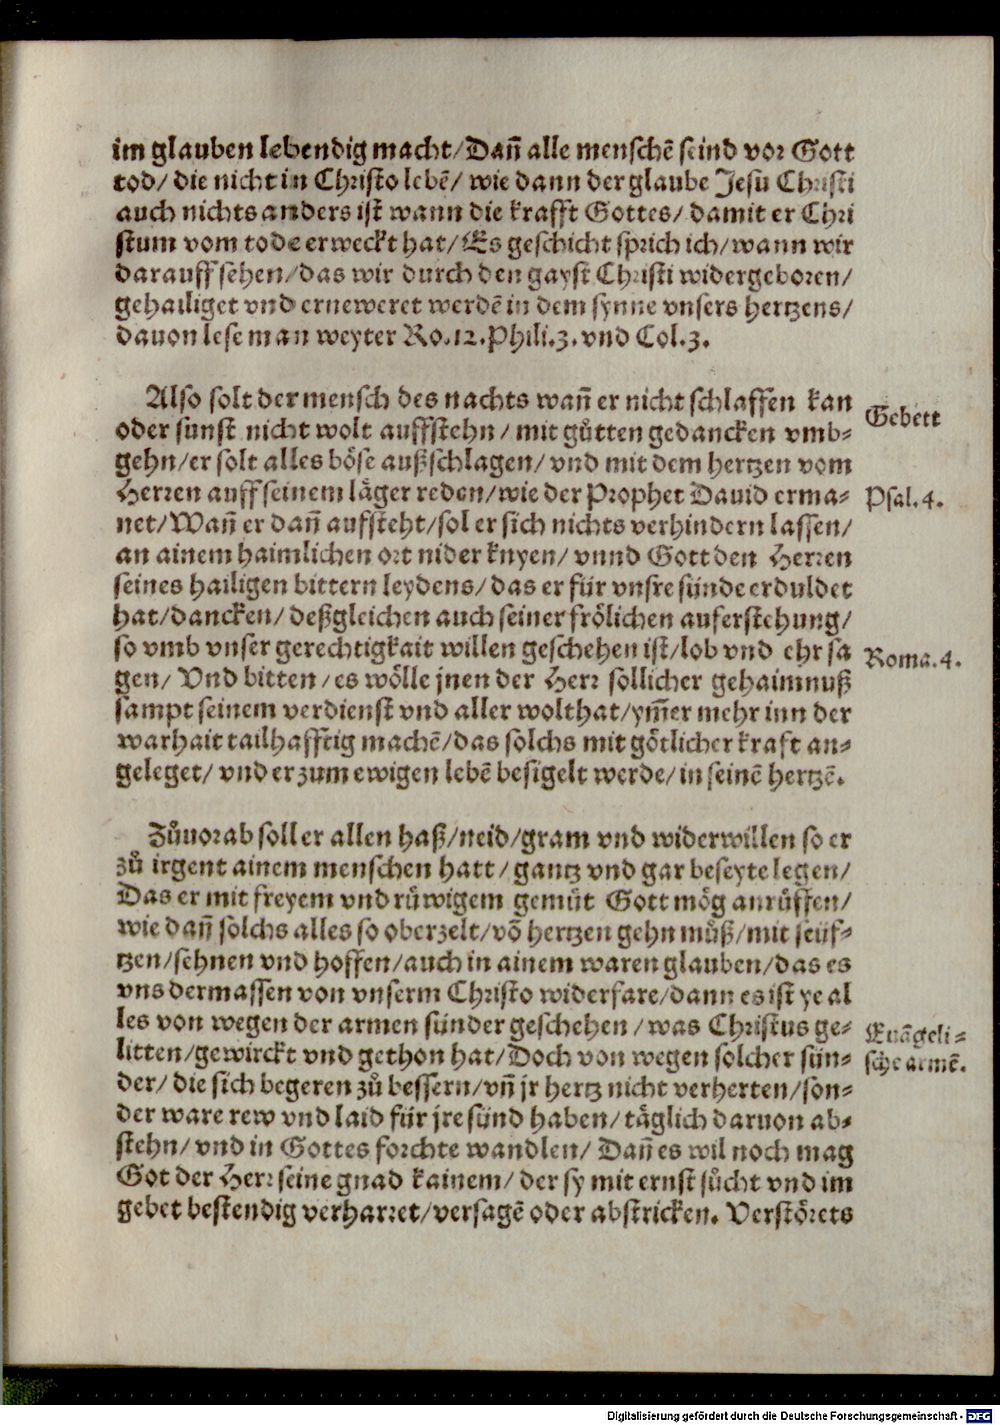 im glauben lebendig macht/Dañ alle menschē seind vor Gott
tod/ die nicht in Christo lebē/ wie dann der glaube Jesu Christi
auch nichts anders ist wann die krafft Gottes/ damit er Chri
stum vom tode erweckt hat/ Es geschicht sprich ich/ wann wir
darauff sehen/ das wir durch den gayst Christi widergeboren/
gehailiget vnd erneweret werdē in dem synne vnsers hertzens/
dauon lese man weyter Ro.12.Phili.3.vnd Col.3.
Also solt der mensch des nachts wañ er nicht schlaffen kan
Gebett
oder sunst nicht wolt auffstehn / mit gůtten gedancken vmb-
gehn/ er solt alles böse außschlagen/ vnd mit dem hertzen vom
Herren auff seinem läger reden/ wie der Prophet Dauid erma-
Psal.4.
net/ Wañ er dañ aufsteht/ sol er sich nichts verhindern lassen/
an ainem haimlichen ort nider knyen/ vnnd Gott den Herren
seines hailigen bittern leydens/ das er für vnsre sünde erduldet
hat/ dancken/ deßgleichen auch seiner frölichen auferstehung/
so vmb vnser gerechtigkait willen geschehen ist/ lob vnd ehr sa
Roma.4.
gen/ Vnd bitten / es wölle jnen der Herr sollicher gehaimnuß
sampt seinem verdienst vnd aller wolthat/ ym̄er mehr inn der
warhait tailhafftig machē/ das solchs mit götlicher kraft an-
geleget/ vnd er zum ewigen lebē besigelt werde/ in seinē hertzē.
Zůuorab soll er allen haß/ neid/ gram vnd widerwillen so er
zů irgent ainem menschen hatt / gantz vnd gar beseyte legen/
Das er mit freyem vnd rüwigem gemüt Gott mög anrüffen/
wie dañ solchs alles so oberzelt/ võ hertzen gehn můß/ mit seüf-
tzen/ sehnen vnd hoffen/ auch in ainem waren glauben/ das es
vns dermassen von vnserm Christo widerfare/ dann es ist ye al
les von wegen der armen sünder geschehen / was Christus ge-
Euāgeli-
litten/ gewirckt vnd gethon hat/ Doch von wegen solcher sün-
sche armē.
der/ die sich begeren zů bessern/ vñ jr hertz nicht verherten/ son-
der ware rew vnd laid für jre sünd haben/ täglich daruon ab-
stehn/ vnd in Gottes forchte wandlen/ Dañ es wil noch mag
Got der Herr seine gnad kainem/ der sy mit ernst sůcht vnd im
gebet bestendig verharret/ versagē oder abstricken. Verstörets
Digitalisierung gefördert durch die Deutsche Forschungsgemeinschaft - DFG